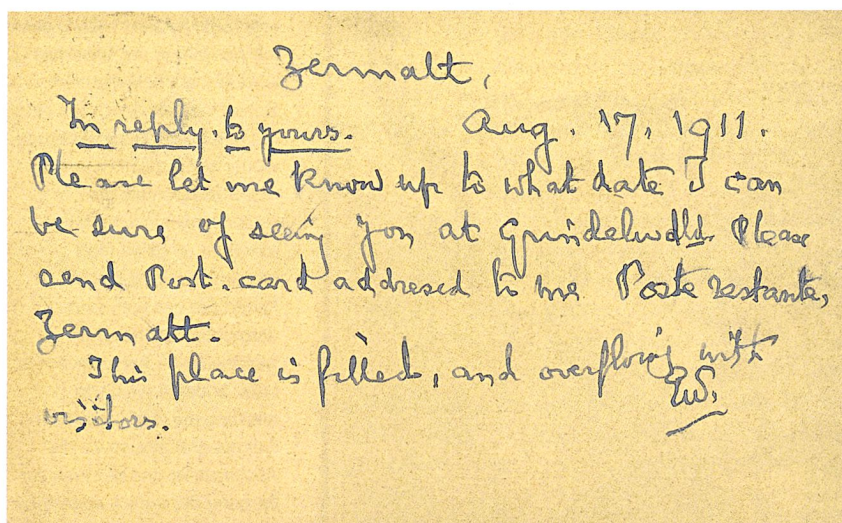 Zermatt,
In reply. to yours. Aug. 17, 1911.
Please let me know up to what date I can
be sure of seeing you at Grindelwald. Please
send Post. card addresed to me Poste restante,
Zermatt.
This place is filled, and overflowing with
visitors.